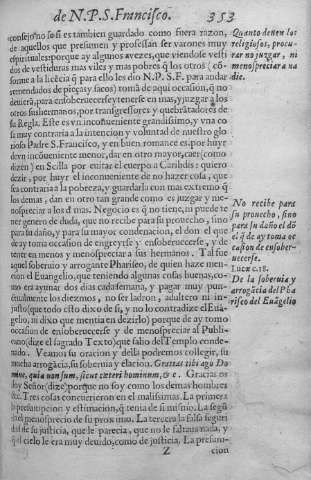 de N. P. S. Francisco. 353
consejo no so es tambien guardado como fuera razon,
de aquellos que presumen y professan ser varones muy
espirituales: porque ay algunos a vezes, que viendose vesti
dos de vestiduras mas viles y mas pobres q̃ los otros (cõ-
forme a la licẽcia q̃ para ello les dio N. P. S. F. para andar
remendados de pieças y sacos) tomã de aqui occasion, q̃ no
deuerã, para ensoberuecerse y tenerse en mas, y juzgar a los
otros sus hermanos, por transgressores y quebrãtadores de
su Regla. Este es vn incõueniente grandissimo, y vna co
sa muy contraria a la intencion y voluntad de nuestro glo
rioso Padre S. Francisco, y en buen romance es, por huyr
de vn incõueniente menor, dar en otro mayor, caer (como
dizen) en Scilla por euitar el cuerpo a Caribdis: quiero
dezir, por huyr el inconueniente de no hazer cosa, que
sea contraria a la pobreza, y guardarla con mas extremo q̃
los demas, dan en otro tan grande como es juzgar y me-
nospreciar a los de mas. Negocio es q̃ no tiene, ni puede te
ner genero de duda, que no recibe para su prouecho, sino
para su daño, y para su mayor condenacion, el don el que
de ay toma occasion de engreyrse y ensoberuecerse, y de
tenerse en menos y menospreciar a sus hermanos. Tal fue
aquel soberuio y arrogante Phariseo, de quien haze men
cion el Euãgelio, que teniendo algunas cosas buenas, co-
mo era ayunar dos dias cada semana, y pagar muy pun-
tualmente los diezmos, no ser ladron, adultero ni in-
justo (que todo esto dixo de si, y no lo contradize el Euã-
gelio, ni dixo que mentia en dezirlo) porque de ay tomo
occasion de ensoberuecerse y de menospreciar al Publi-
cano (dize el sagrado Texto) que salio del Templo conde-
nado. Veamos su oracion y della podremos collegir, su
mucha arrogãcia, su soberuia y elacion. Gratias tibi ago Do
mine, quia non sum, sicut cæteri hominum, & c. Gracias os
doy Señor (dize) porque no soy como los demas hombres
&c. Tres cosas concurrieron en el malissimas. La primera
la presumpcion y estimacion, q̃ tenia de si mismo. La segũ
da el menosprecio de su proximo. La tercera la falsa seguri
dad de su justicia, que le parecia, que no le faltaua nada, y
q̃ al cielo le era muy deuido, como de justicia. La presum-
Z cion
Quanto deuen los
relegiosos, procu-
rar no juzgar, ni
menospreciar a na
die.
No recibe para
su prouecho, sino
para su daño el dõ
el q̃ de ay toma oc
casion de ensober-
uecerse.
Lucæ c. 18.
De la soberuia y
arrogãcia del Pha
riseo del Euãgelio